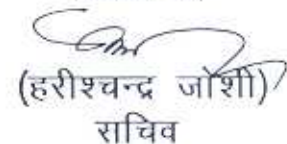 (हरीश्चन्द्र जोशी)
सचिव